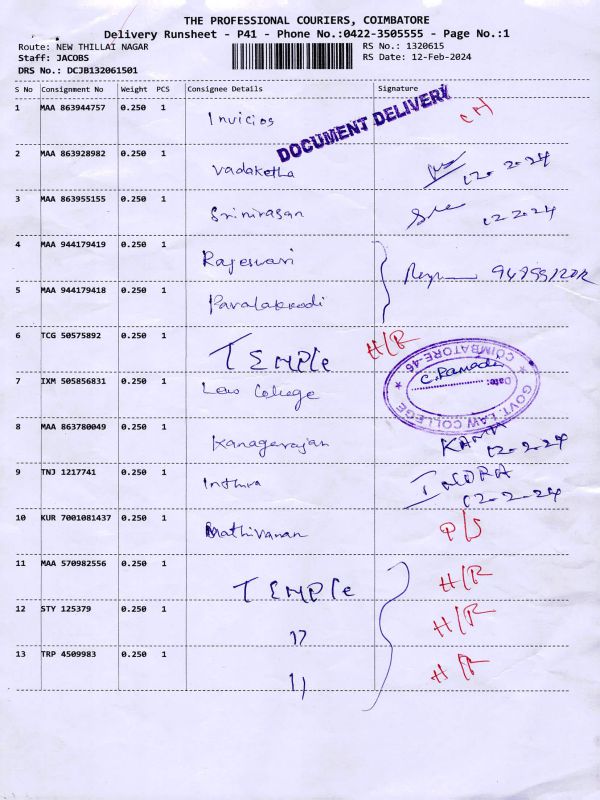 THE PROFESSIONAL COURIERS, COIMBATORE
Delivery Runsheet - P41 - Phone No.:0422-3505555 - Page No.:1
Route: NEW THILLAI NAGAR RS No.: 1320615
Staff: JACOBS RS Date: 12-Feb-2024
DRS No.: DCJB132061501
S No Consignment No Weight PCS Consignee Details Signature
DOCUMENT DELIVERY
1 MAA 863944757 0.250 1 Invicios CH
2 MAA 863928982 0.250 1 Vadaketha 12-2-24
3 MAA 863955155 0.250 1 Srinivasan 12 2024
4 MAA 944179419 0.250 1 Rajeswari
5 MAA 944179418 0.250 1
6 TCG 50575892 0.250 1 TEMPLe H/R
7 IXM 505856831 0.250 1 Law College
GOVT. LAW COLLEGE
COIMBATORE-46
Date:
8 MAA 863780049 0.250 1 Kanagarajan 12-2-24
9 TNJ 1217741 0.250 1 Inthra INDRA 12-2-24
10 KUR 7001081437 0.250 1 Mathivanan P/S
11 MAA 570982556 0.250 1 TEMPLe H/R
12 STY 125379 0.250 1 11 H/R
13 TRP 4509983 0.250 1 11 H/R